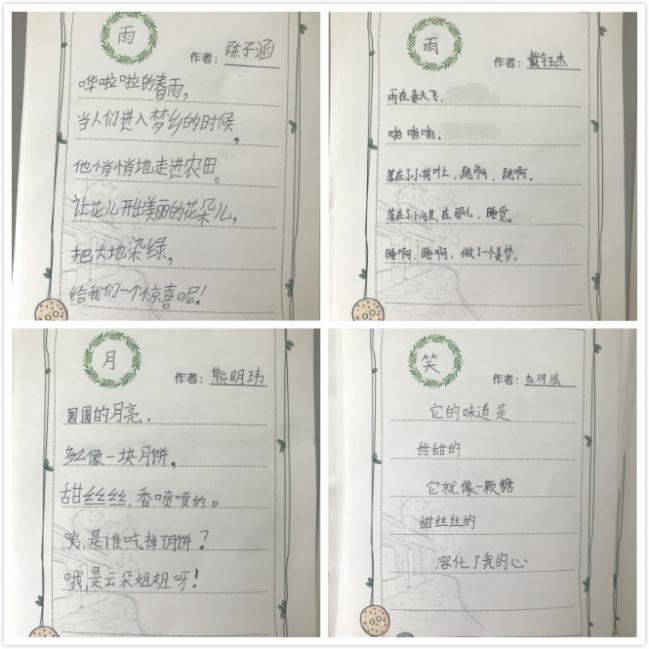 雨
作者：陈子涵
哗啦啦的春雨，
当人们进入梦乡的时候，
他悄悄地走进农田。
让花儿开出美丽的花朵儿，
把大地染绿，
给我们一个惊喜呢！
雨
作者：戴钰杰
雨在春天飞，
啪啪啪。
落在了小荷叶上，跳啊，跳啊。
落在了小河里，在那儿，睡觉。
睡啊，睡啊，做了一个美梦。
月
作者：熊明玮
圆圆的月亮，
多么像一块月饼，
甜丝丝丝，香喷喷的。
咦，是谁吃掉了月饼？
哦，是云朵姐姐呀！
笑
作者：杜玥瑶
它的味道是
甜甜的
它就像一颗糖
甜丝丝的
溶化了我的心